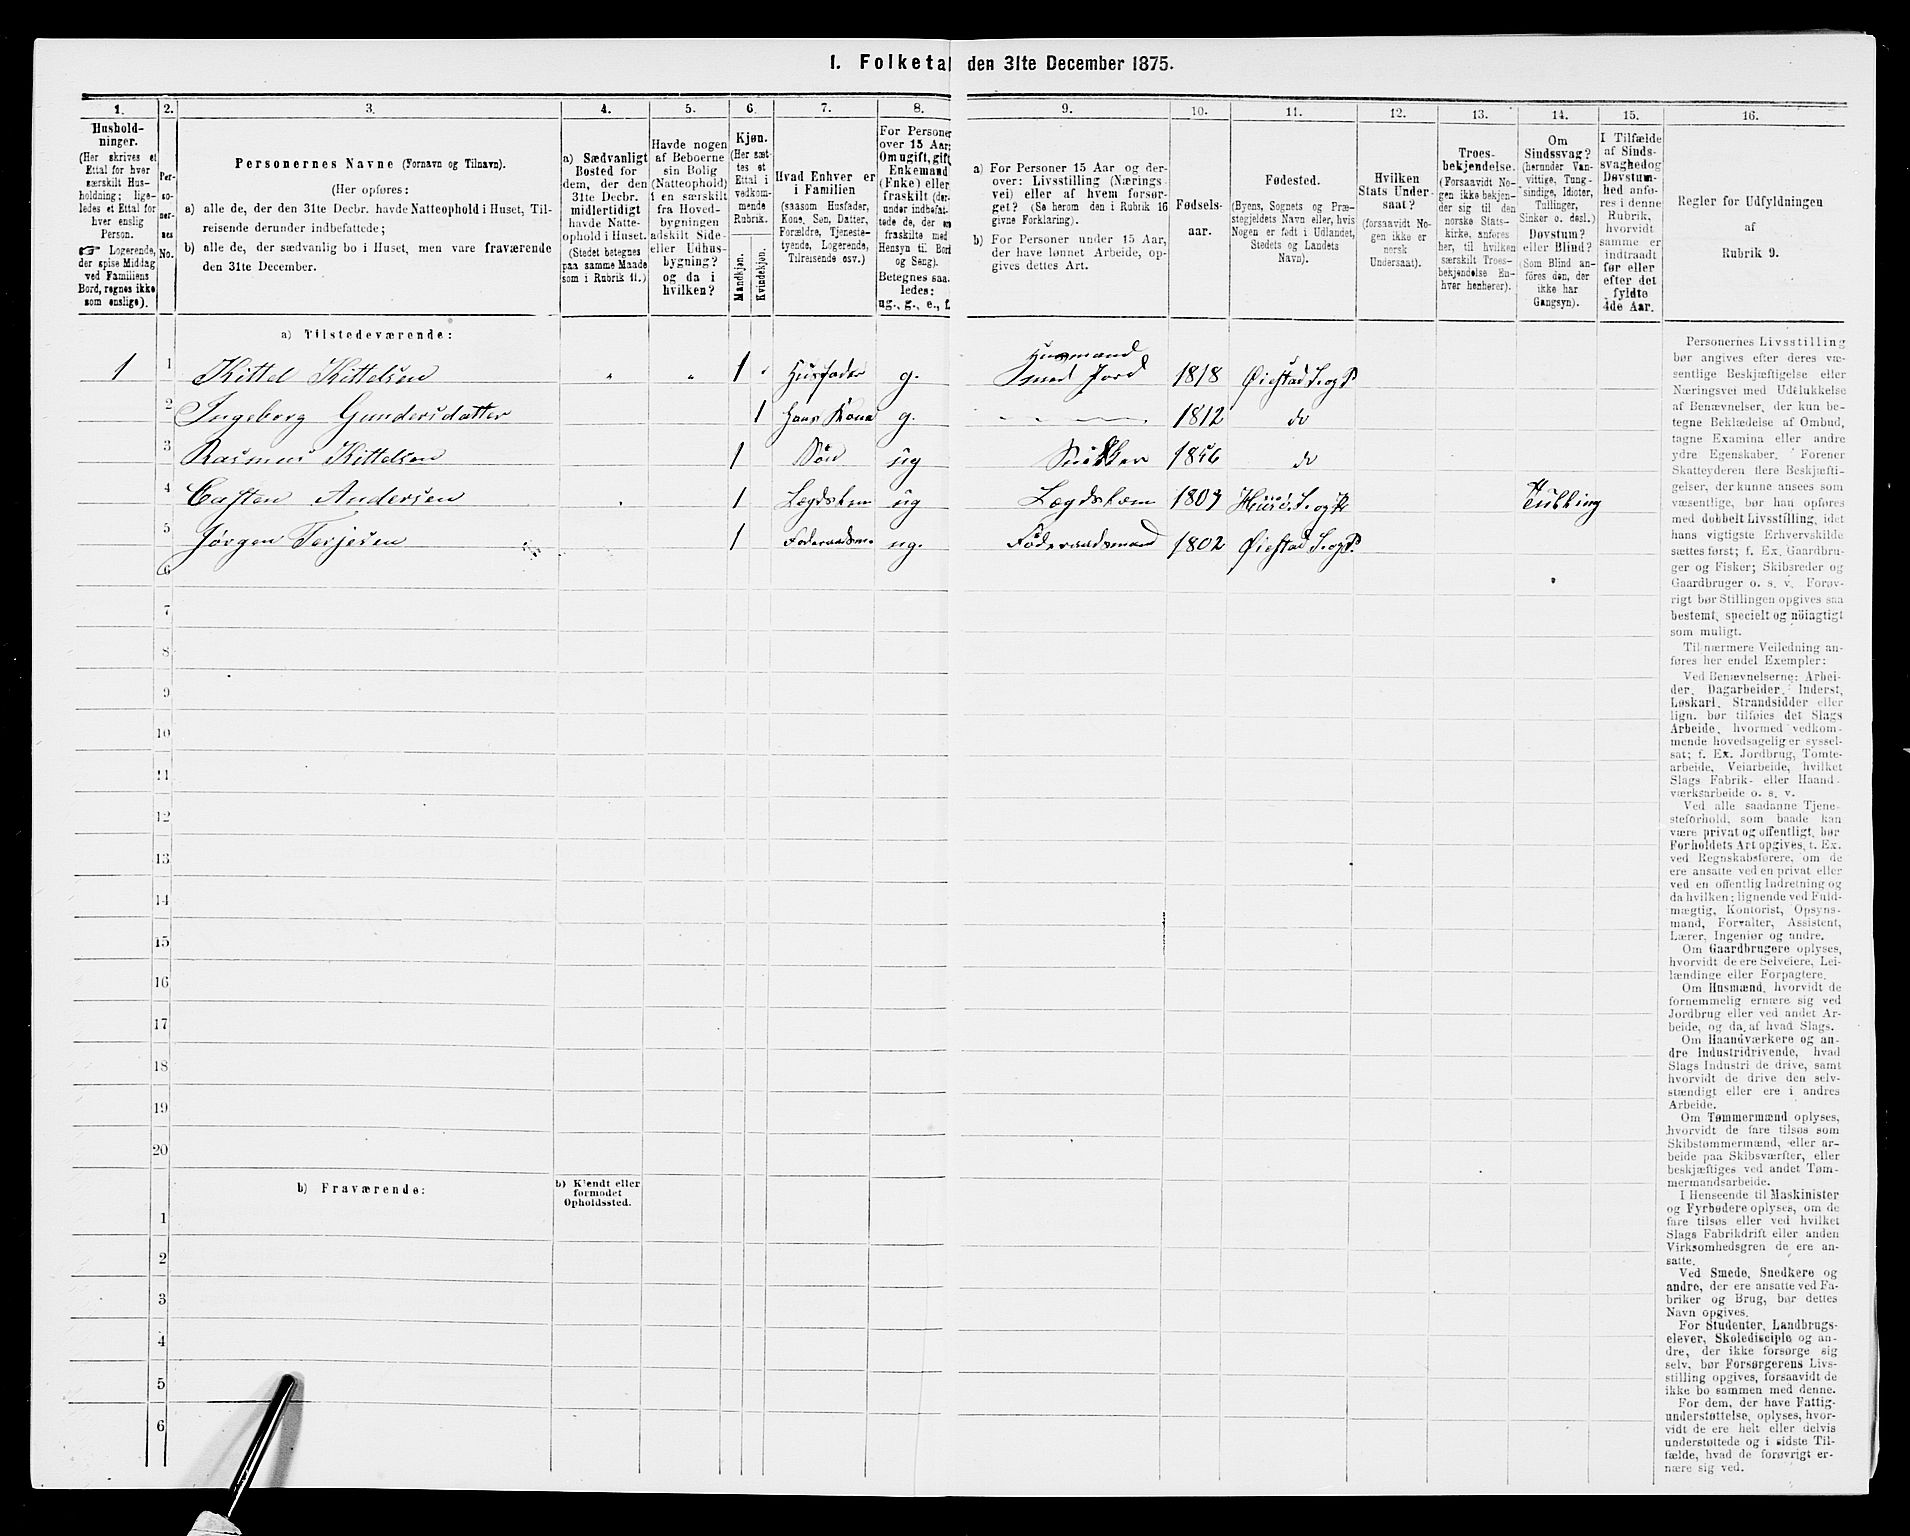 1. Folketal den 31te December 1875.
1. 2. 3. 4. 5. 6. 7. 8. 9. 10. 11. 12. 13. 14. 15. 16.
Hushold-
ninger.
(Her skrives et
Ettal for hver
særskilt Hus-
holdning; lige-
ledes et Ettal for
hver enslig
Person.
☞ Logerende,
der spise Middag
ved Familiens
Bord, regnes ikke
som enslige).
Per-
so-
ner-
nes
No.
Personernes Navne (Fornavn og Tilnavn).
(Her opføres:
a) alle de, der den 31te Decbr. havde Natteophold i Huset, Til-
reisende derunder indbefattede;
b) alle de, der sædvanlig bo i Huset, men vare fraværende
den 31te December.
a) Sædvanligt
Bosted for
dem, der den
31te Decbr.
midlertidigt
havde Natte-
ophold i Huset.
(Stedet betegnes
paa samme Maade
som i Rubrik 11.)
Havde nogen
af Beboerne
sin Bolig
(Natteophold)
i en særskilt
fra Hoved-
bygningen
adskilt Side-
eller Udhus-
bygning?
og da i
hvilken?
Kjøn.
(Her sæt-
tes et
Ettal i
vedkom-
mende
Rubrik.
Mandkjøn.
Kvindekjøn.
Hvad Enhver er
i Familien
(saasom Husfader,
Kone, Søn, Datter,
Forældre, Tjeneste-
tyende, Logerende,
Tilreisende osv.)
For Personer
over 15 Aar;
Om ugift, gift,
Enkemand
(Enke) eller
fraskilt (der-
under indbefat-
tede de, der ere
fraskilte med
Hensyn til Bord
og Seng).
Betegnes saa-
ledes:
ug., g., e., f.
a) For Personer 15 Aar og der-
over: Livsstilling (Nærings-
vei) eller af hvem forsør-
get? (Se herom den i Rubrik 16
givne Forklaring).
b) For Personer under 15 Aar,
der have lønnet Arbeide, op-
gives dettes Art.
Fødsels-
aar.
Fødested.
(Byens, Sognets og Præ-
stegjeldets Navn eller, hvis
Nogen er født i Udlandet,
Stedets og Landets
Navn).
Hvilken
Stats Under-
saat?
(forsaavidt No-
gen ikke er
norsk
Undersaat).
Troes-
bekjendelse.
(Forsaavidt No-
gen ikke bekjen-
der sig til den
norske Stats-
kirke, anføres
her, til hvilken
særskilt Troes-
bekjendelse En-
hver henhører).
Om
Sindssvag?
(herunder Van-
vittige, Tung-
sindige, Idioter,
Tullinger,
Sinker o. desl.)
Døvstum?
eller Blind?
(Som Blind an-
føres den, der
ikke har
Gangsyn).
I Tilfælde
af Sinds-
svaghed og
Døvstum-
hed anfø-
res i denne
Rubrik,
hvorvidt
samme er
indtraadt
før eller
efter det
fyldte
4de Aar.
Regler for Udfyldningen
af
Rubrik 9.
a) Tilstedeværende:
1 1 Kittel Kittelsen " " 1 Husfader g. Husmand med Jord 1818 Øiestad S. og P.
2 Ingeborg Gundersdatter 1 Hans Kone g. 1812 do
3 Rasmus Kittelsen 1 Søn ug 1856 do
4 Casten Andersen 1 Lægdslem ug Lægdslem S. og P. Tulling
5 Jørgen Terjesen 1 Føderaadsm. ug. Føderaadsmand 1802 Øiestad S. og P.
6
7
8
9
10
11
12
13
14
15
16
17
18
19
20
b) Fraværende:
b) Kjendt eller
formodet
Opholdssted.
1
2
3
4
5
6
Personernes Livsstilling
bør angives efter deres væ-
sentlige Beskjæftigelse eller
Næringsvei med Udelukkelse
af Benævnelser, der kun be-
tegne Beklædelse af Ombud,
tagne Examina eller andre
ydre Egenskaber. Forener
Skatteyderen flere Beskjæfti-
gelser, der kunne ansees som
væsentlige, bør han opføres
med dobbelt Livsstilling, idet
hans vigtigste Erhvervskilde
sættes først; f. Ex. Gaardbru-
ger og Fisker; Skibsreder og
Gaardbruger o. s. v. Forøv-
rigt bør Stillingen opgives saa
bestemt, specielt og nöiagtigt
som muligt.
Til nærmere Veiledning an-
føres her endel Exempler:
Ved Benævnelserne: Arbei-
der, Dagarbeider, Inderst,
Løskarl, Strandsidder eller
lign. bør tilføies det Slags
Arbeide, hvormed vedkom-
mende hovedsagelig er syssel-
sat; f. Ex. Jordbrug, Tomte-
arbeide, Veiarbeide, hvilket
Slags Fabrik- eller Haand-
værksarbeide o. s. v.
Ved alle saadanne Tjene-
steforhold, som baade kan
være privat og offentligt, bør
Forholdets Art opgives, f. Ex.
ved Regnskabsførere, om de
ere ansatte ved en privat eller
ved en offentlig Indretning og
da hvilken; lignende ved Fuld-
mægtig, Kontorist, Opsyns-
mand, Forvalter, Assistent,
Lærer, Ingeniør og andre.
Om Gaardbrugere oplyses,
hvorvidt de ere Selveiere, Lei-
lændinge eller Forpagtere.
Om Husmænd, hvorvidt de
fornemmelig ernære sig ved
Jordbrug eller ved andet Ar-
beide, og da af hvad Slags.
Om Haandværkere og an-
dre Industridrivende, hvad
Slags Industri de drive, samt
hvorvidt de drive den selv-
stændigt eller ere i andres
Arbeide.
Om Tømmermænd oplyses,
hvorvidt de fare tilsøs som
Skibstømmermænd, eller ar-
beide paa Skibsværfter, eller
beskjæftiges ved andet Tøm-
mermandsarbeide.
I Henseende til Maskinister
og Fyrbødere oplyses, om de
fare tilsøs eller ved hvilket
Slags Fabrikdrift eller anden
Virksomhedsgren de ere an-
satte.
Ved Smede, Snedkere og
andre, der ere ansatte ved Fa-
briker og Brug, bør dettes
Navn opgives.
For Studenter, Landbrugs-
elever, Skoledisciple og an-
dre, der ikke forsørge sig
selv, bør Forsørgerens Livs-
stilling opgives, forsaavidt de
ikke bo sammen med denne.
For dem, der have Fattig-
understøttelse, oplyses, hvor-
vidt de ere helt eller delvis
understøttede og i sidste Til-
fælde, hvad de forøvrigt er-
nære sig ved.